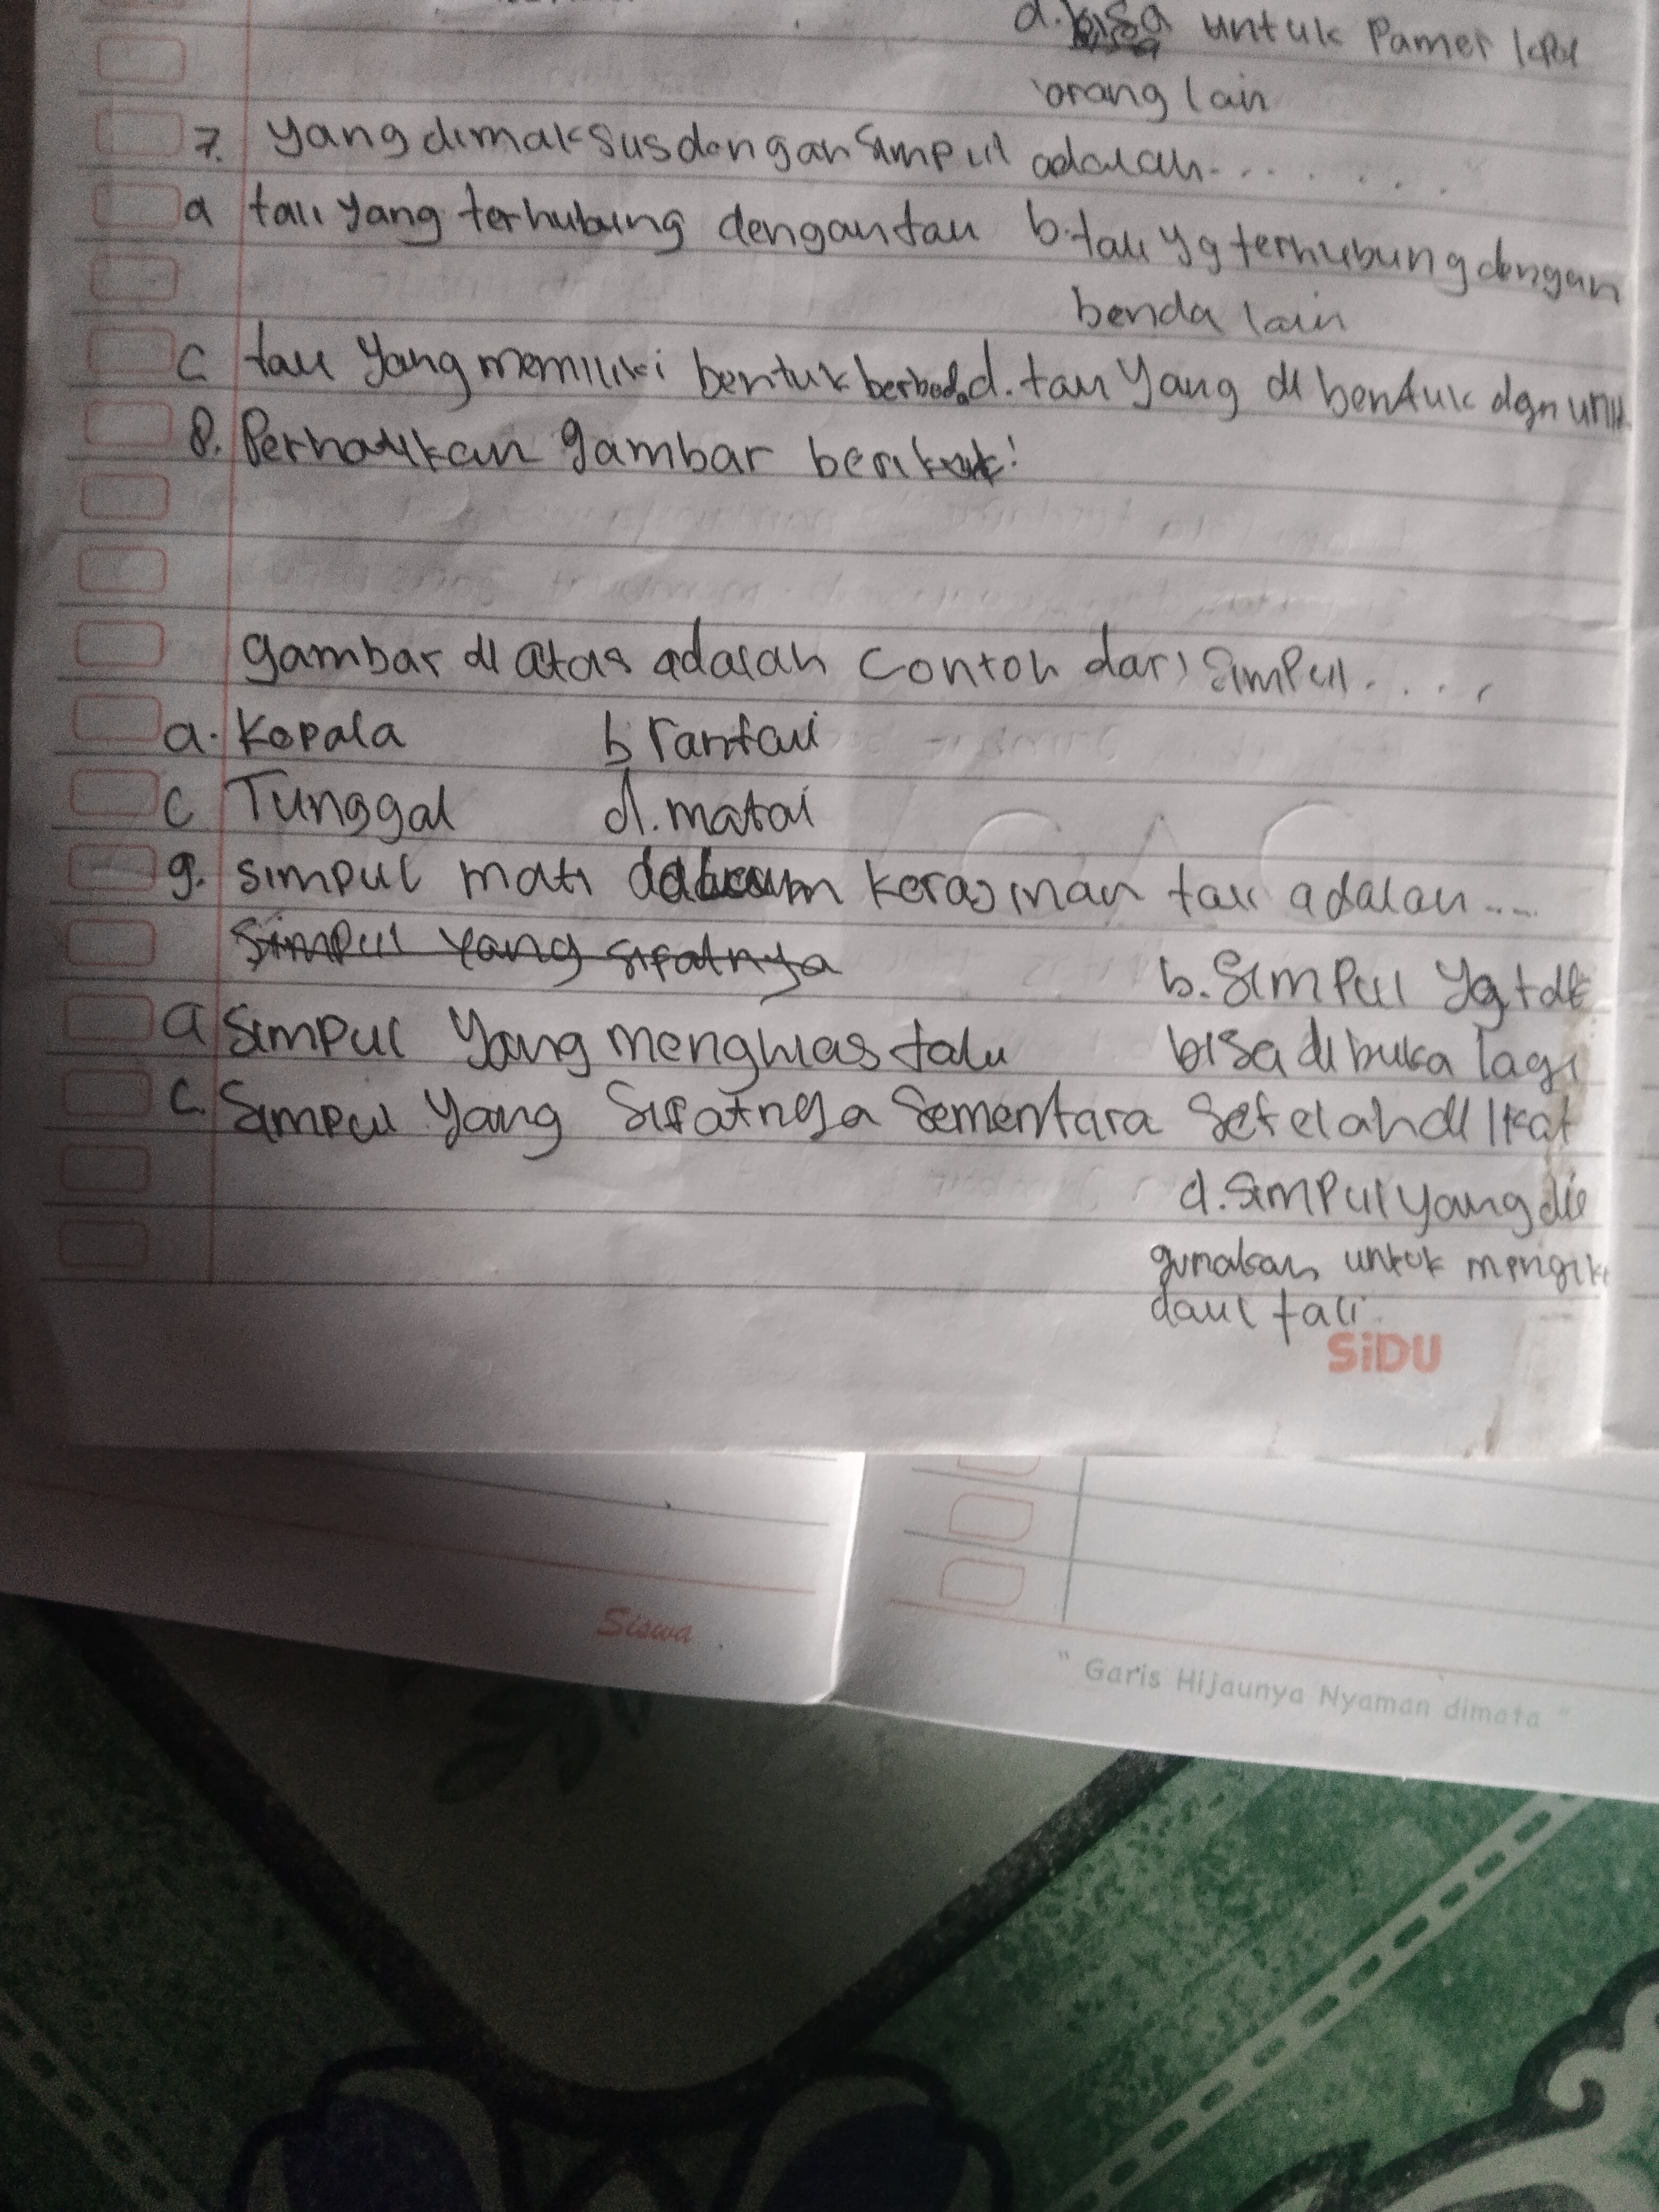 d. bisa untuk Pamer kpd
orang lain
7. yang dimaksus dengan Simpul adalah........
a tali yang terhubung dengan tali b. tali yg terhubung dengan
benda lain
c tali yang memiliki bentuk berbeda d. tali yang di bentuk dgn unik
8. Perhatikan gambar berikut!
gambar di atas adalah Contoh dari Simpul.....
a. Kepala b rantai
c Tunggal d. matai
9. simpul mati dalam kerajinan tali adalah....
Simpul yang sifatnya
b. Simpul yg tdk
a Simpul yang menghias talu bisa di buka lagi
c. Simpul yang Sifatnya Sementara Setelah di Ikat
d. Simpul yang di
gunakan untuk mengik
daul tali.
SiDU
Siswa
" Garis Hijaunya Nyaman dimata "